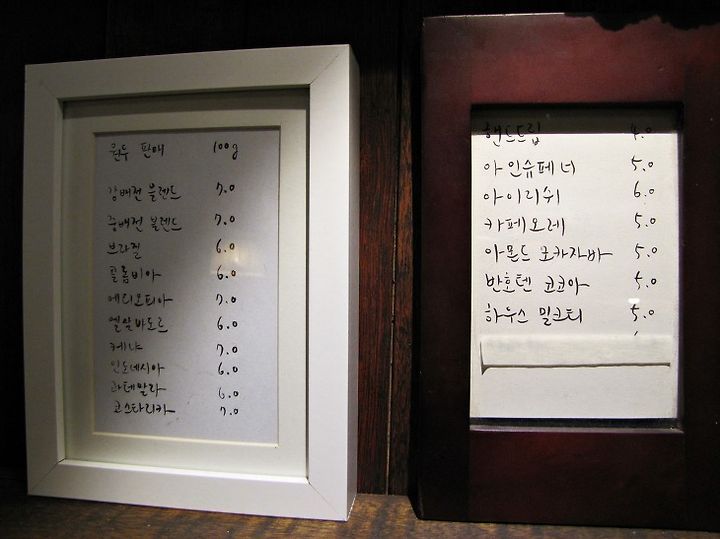 원두 판매 100g
강배전 블렌드 7.0
중배전 블렌드 7.0
브라질 6.0
콜롬비아 6.0
에티오피아 7.0
엘살바도르 6.0
케냐 7.0
인도네시아 6.0
과테말라 6.0
코스타리카 7.0
핸드드립 4.0
아인슈페너 5.0
아이리쉬 6.0
카페오레 5.0
아몬드 모카자바 5.0
반호텐 코코아 5.0
하우스 밀크티 5.0